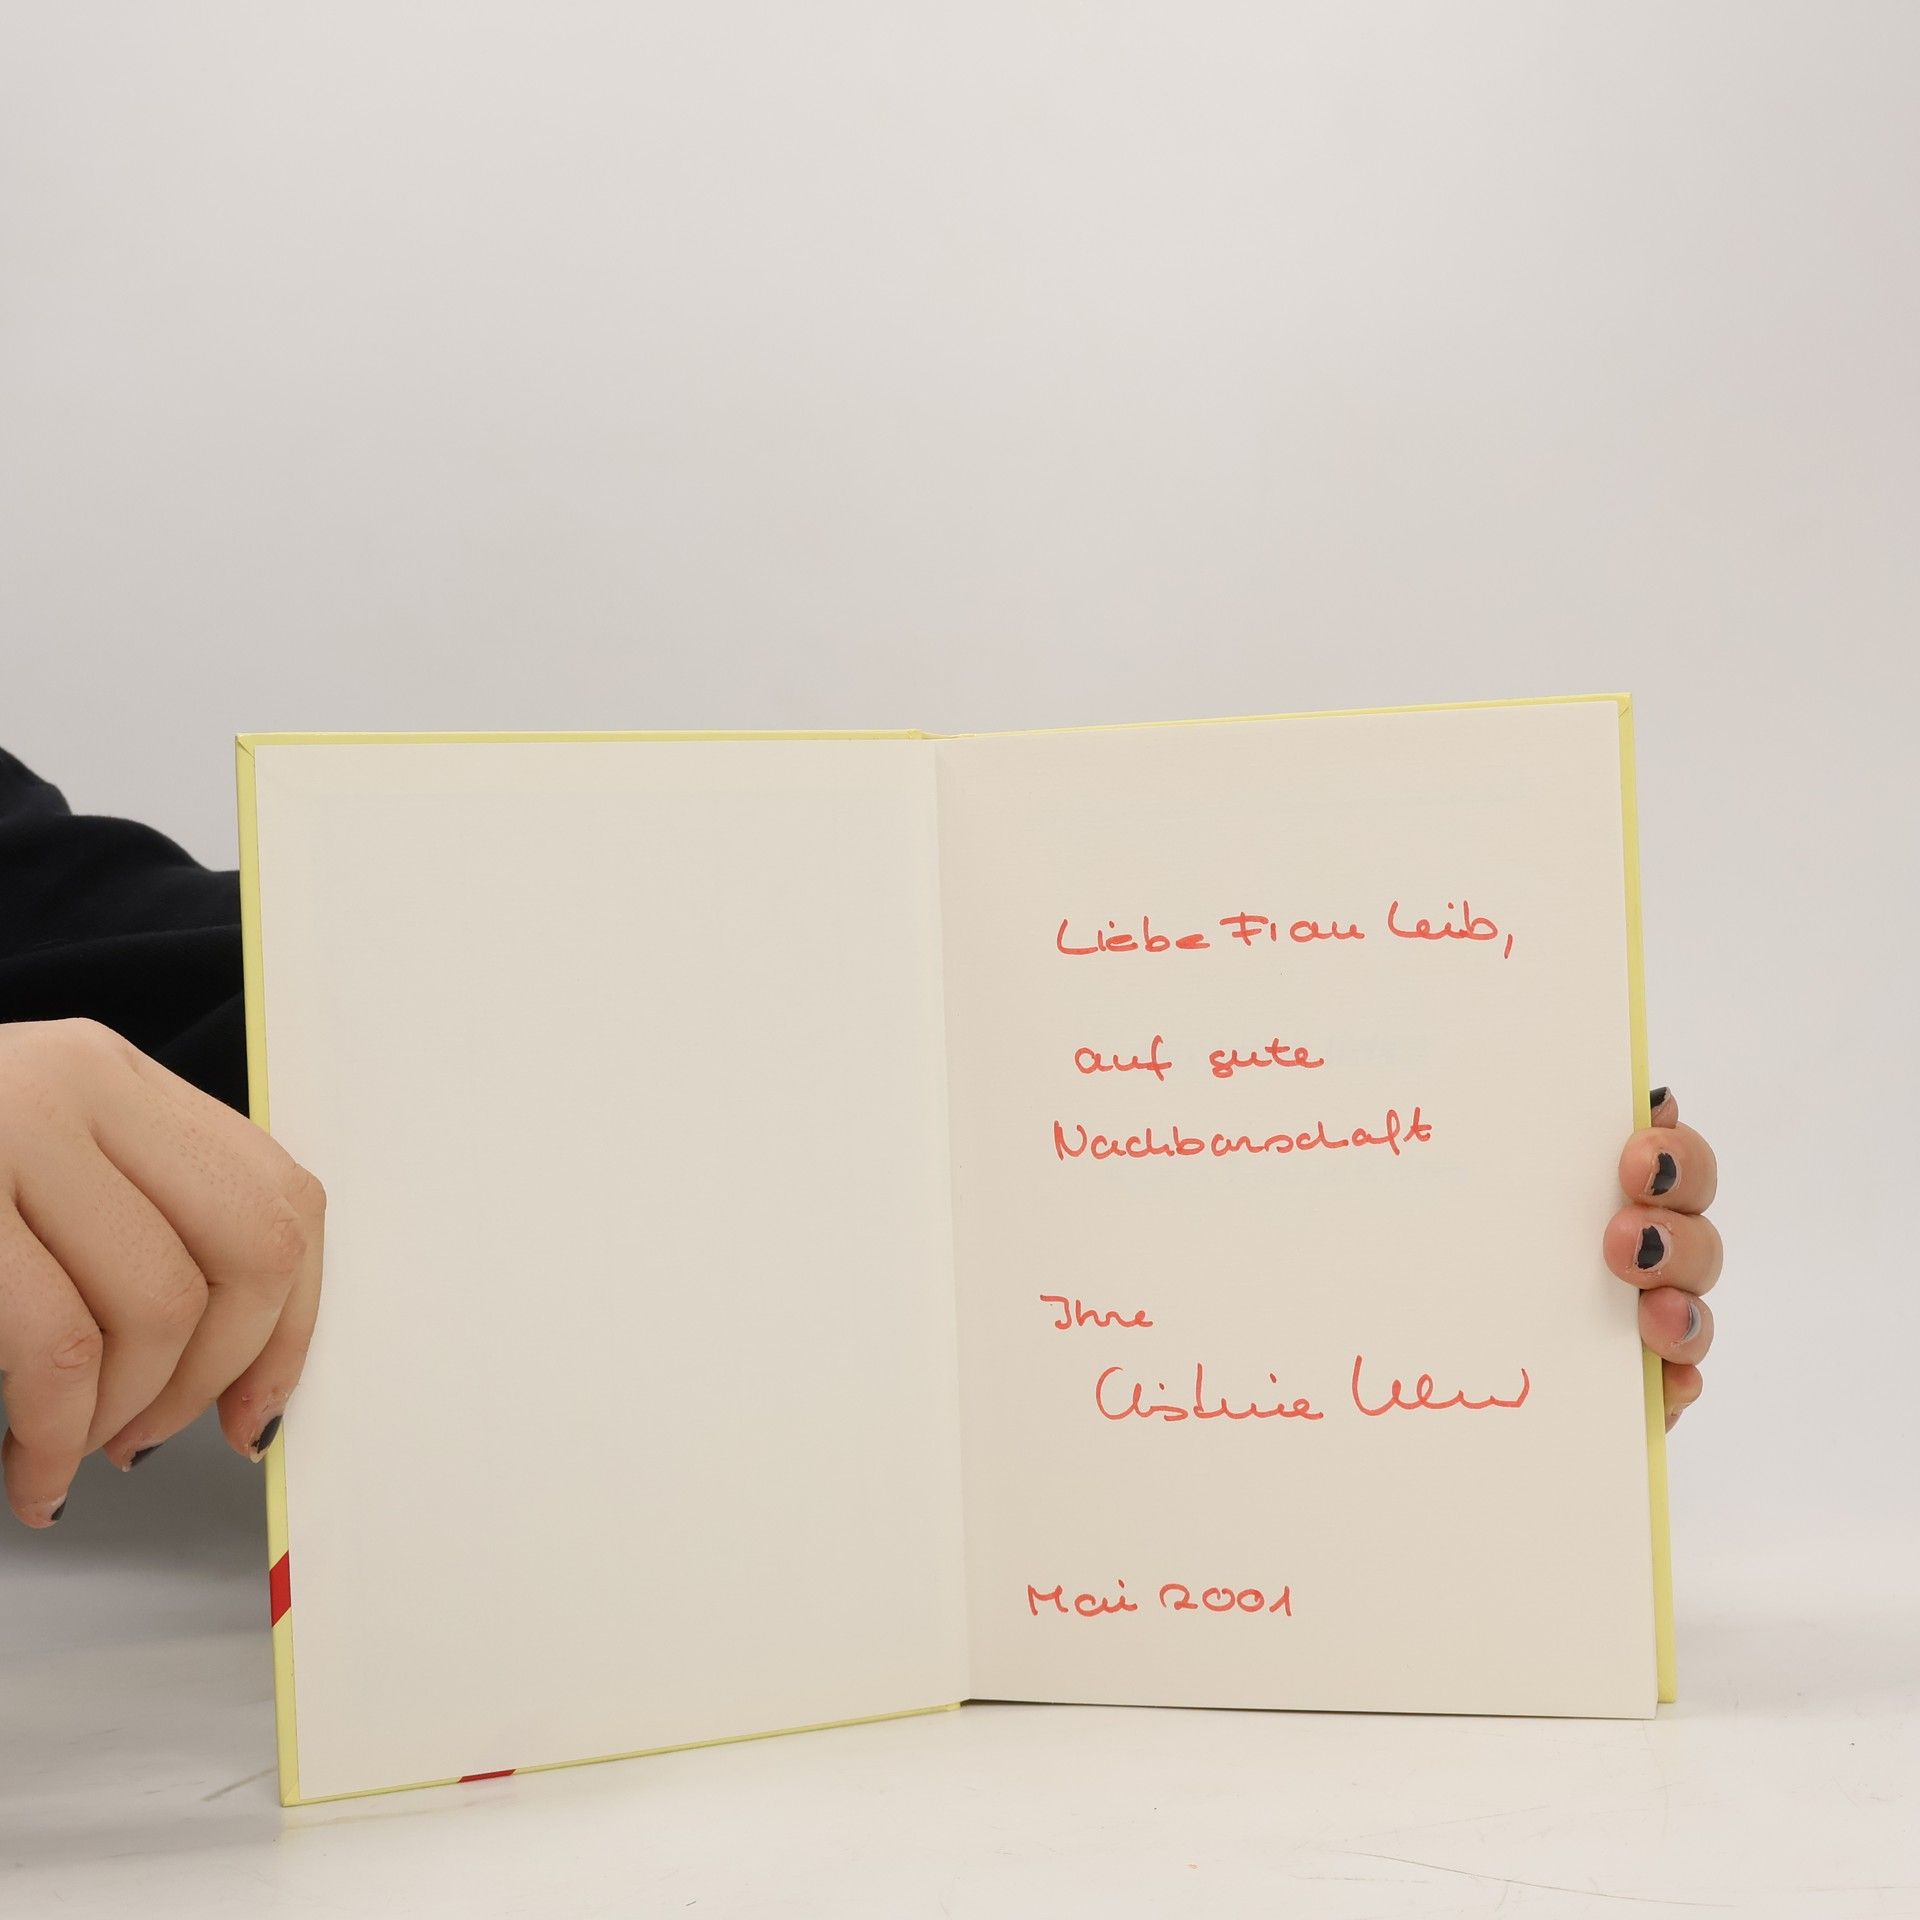 Liebe Frau Leib,
auf gute
Nachbarschaft
Ihre
Christine
Mai 2001